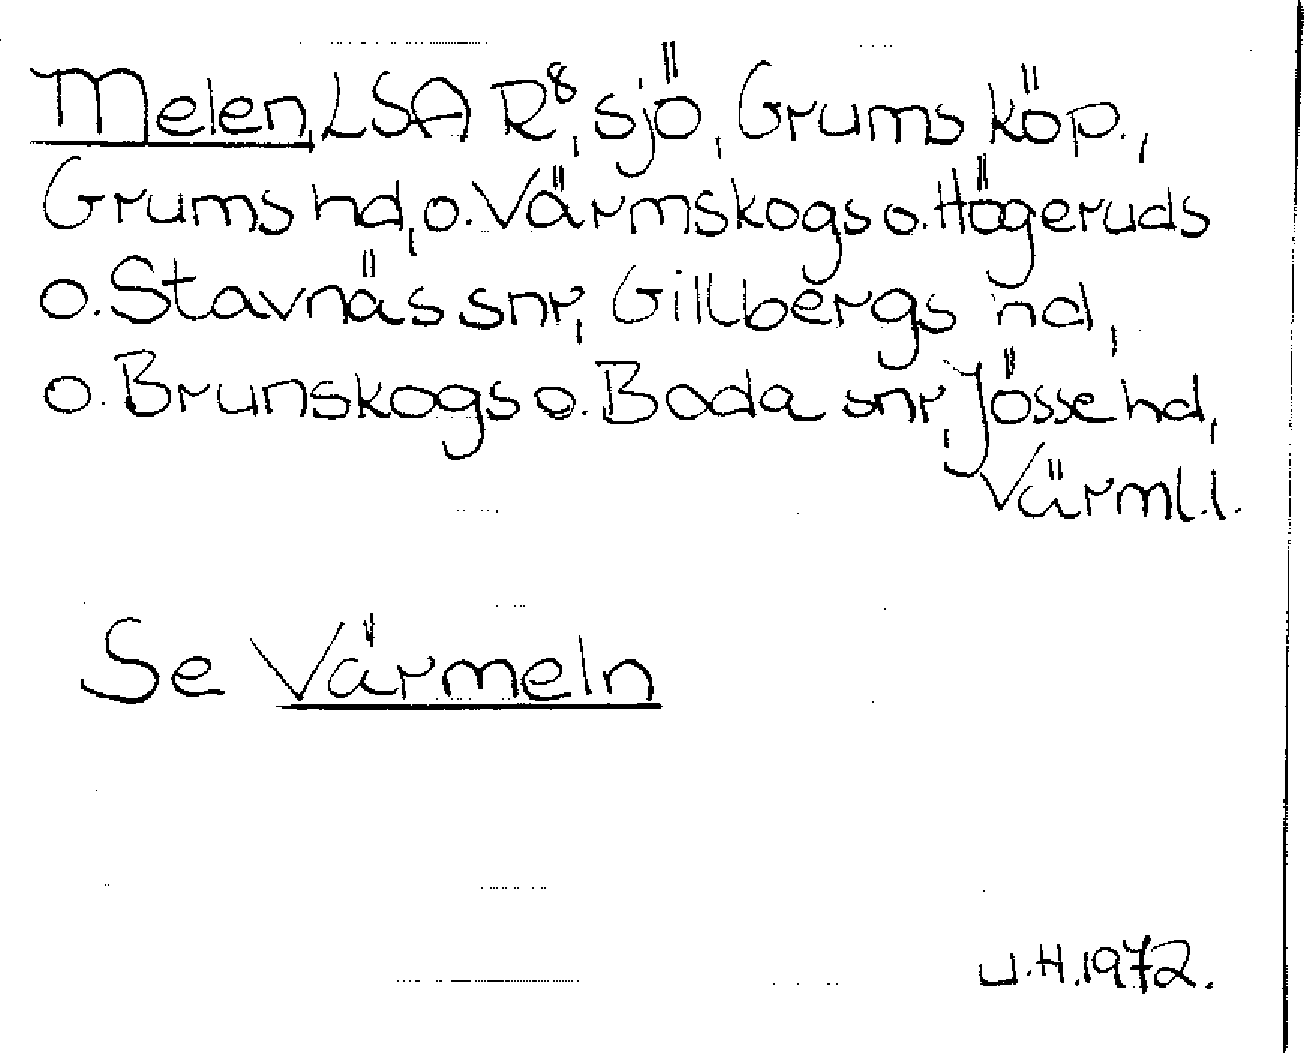 Melen, LSA R⁸, sjö, Grums köp.,
Grums hd, o. Värmskogs o. Högeruds
o. Stavnäs snr, Gillbergs hd,
o. Brunskogs o. Boda snr, Jösse hd,
Värml.l.
Se Värmeln
U.H.1972.